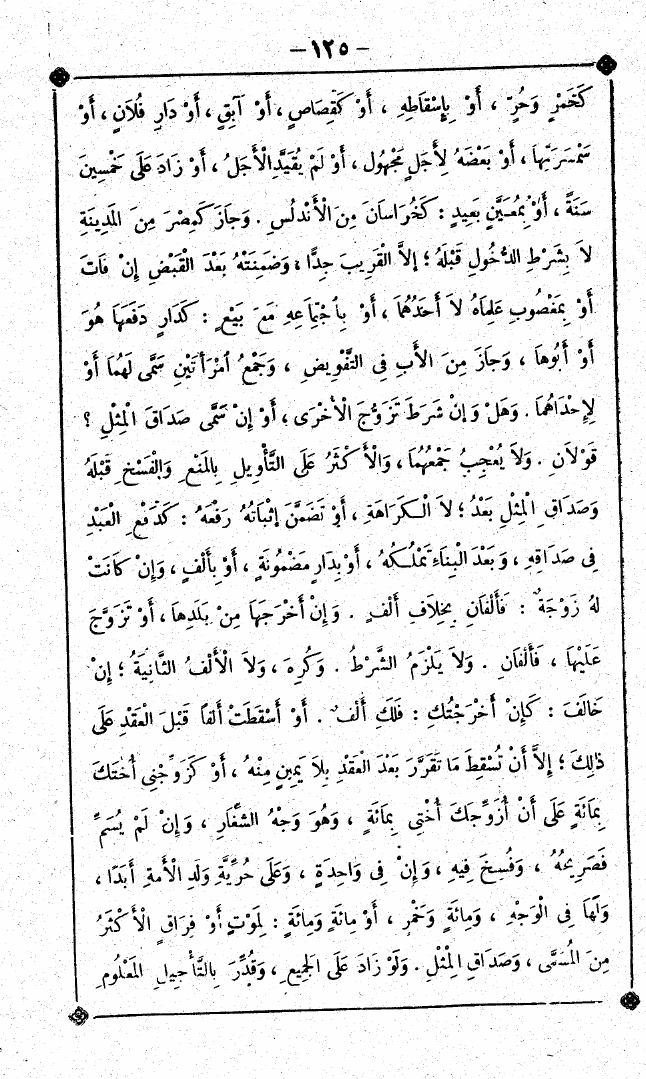 – ١٢٥ –
كَخَمْرٍ وَحُرٍّ ، أَوْ بِإِسْقَاطِهِ ، أَوْ كَقِصَاصٍ ، أَوْ آبِقٍ ، أَوْ دَارِ فُلَانٍ ، أَوْ
سَمْسَرَتِهَا ، أَوْ بَعْضَهُ لِأَجَلٍ مَجْهُولٍ ، أَوْ لَمْ يُقَيَّدِ الْأَجَلُ ، أَوْ زَادَ عَلَى خَمْسِينَ
سَنَةً ، أَوْ بِمُعَيَّنٍ بَعِيدٍ : كَخُرَاسَانَ مِنَ الْأَنْدَلُسِ . وَجَازَ كَمِصْرَ مِنَ الْمَدِينَةِ
لَا بِشَرْطِ الدُّخُولِ قَبْلَهُ ؛ إِلاَّ الْقَرِيبَ جِدًّا ، وَضَمِنَتْهُ بَعْدَ الْقَبْضِ إِنْ فَاتَ
أَوْ بِمَغْصُوبٍ عَلِمَاهُ لَا أَحَدُهُمَا ، أَوْ بِاجْتِمَاعِهِ مَعَ بَيْعٍ : كَدَارٍ دَفَعَهَا هُوَ
أَوْ أَبُوهَا ، وَجَازَ مِنَ الْأَبِ فِي التَّفْوِيضِ ، وَجَمْعُ امْرَأَتَيْنِ سَمَّى لَهُمَا أَوْ
لِإِحْدَاهُمَا . وَهَلْ وَإِنْ شَرَطَ تَزَوُّجَ الْأُخْرَى ؛ أَوْ إِنْ سَمَّى صَدَاقَ الْمِثْلِ ؟
قَوْلَانِ . وَلَا يُعْجِبُ جَمْعُهُمَا ، وَالْأَكْثَرُ عَلَى التَّأْوِيلِ بِالْمَنْعِ وَالْفَسْخِ قَبْلَهُ
وَصَدَاقِ الْمِثْلِ بَعْدُ ؛ لَا الْكَرَاهَةِ ، أَوْ تَضَمَّنَ إِثْبَاتُهُ رَفْعَهُ : كَدَفْعِ الْعَبْدِ
فِي صَدَاقِهِ ، وَبَعْدَ الْبِنَاءِ تَمْلِكُهُ ، أَوْ بِدَارٍ مَضْمُونَةٍ ، أَوْ بِأَلْفٍ ، وَإِنْ كَانَتْ
لَهُ زَوْجَةٌ : فَأَلْفَانِ بِخِلَافِ أَلْفٍ . وَإِنْ أَخْرَجَهَا مِنْ بَلَدِهَا ، أَوْ تَزَوَّجَ
عَلَيْهَا ، فَأَلْفَانِ . وَلَا يَلْزَمُ الشَّرْطُ . وَكُرِهَ ، وَلَا الْأَلْفُ الثَّانِيَةُ ؛ إِنْ
خَالَفَ : كَإِنْ أَخْرَجْتُكِ : فَلَكِ أَلْفٌ . أَوْ أَسْقَطَتْ أَلْفًا قَبْلَ الْعَقْدِ عَلَى
ذٰلِكَ ؛ إِلاَّ أَنْ تُسْقِطَ مَا تَقَرَّرَ بَعْدَ الْعَقْدِ بِلَا يَمِينٍ مِنْهُ ، أَوْ كَزَوِّجْنِي أُخْتَكَ
بِمَائَةٍ عَلَى أَنْ أُزَوِّجَكَ أُخْتِي بِمَائَةٍ ، وَهُوَ وَجْهُ الشِّغَارِ ، وَإِنْ لَمْ يُسَمِّ
فَصَرِيحُهُ ، وَفُسِخَ فِيهِ ، وَإِنْ فِي وَاحِدَةٍ ، وَعَلَى حُرِّيَّةِ وَلَدِ الْأَمَةِ أَبَدًا ،
وَلَهَا فِي الْوَجْهِ ، وَمِائَةٍ وَخَمْرٍ ، أَوْ مِائَةٍ وَمِائَةٍ : لِمَوْتٍ أَوْ فِرَاقٍ الْأَكْثَرُ
مِنَ الْمُسَمَّى ، وَصَدَاقِ الْمِثْلِ . وَلَوْ زَادَ عَلَى الْجَمِيعِ ، وَقُدِّرَ بِالتَّأْجِيلِ الْمَعْلُومِ